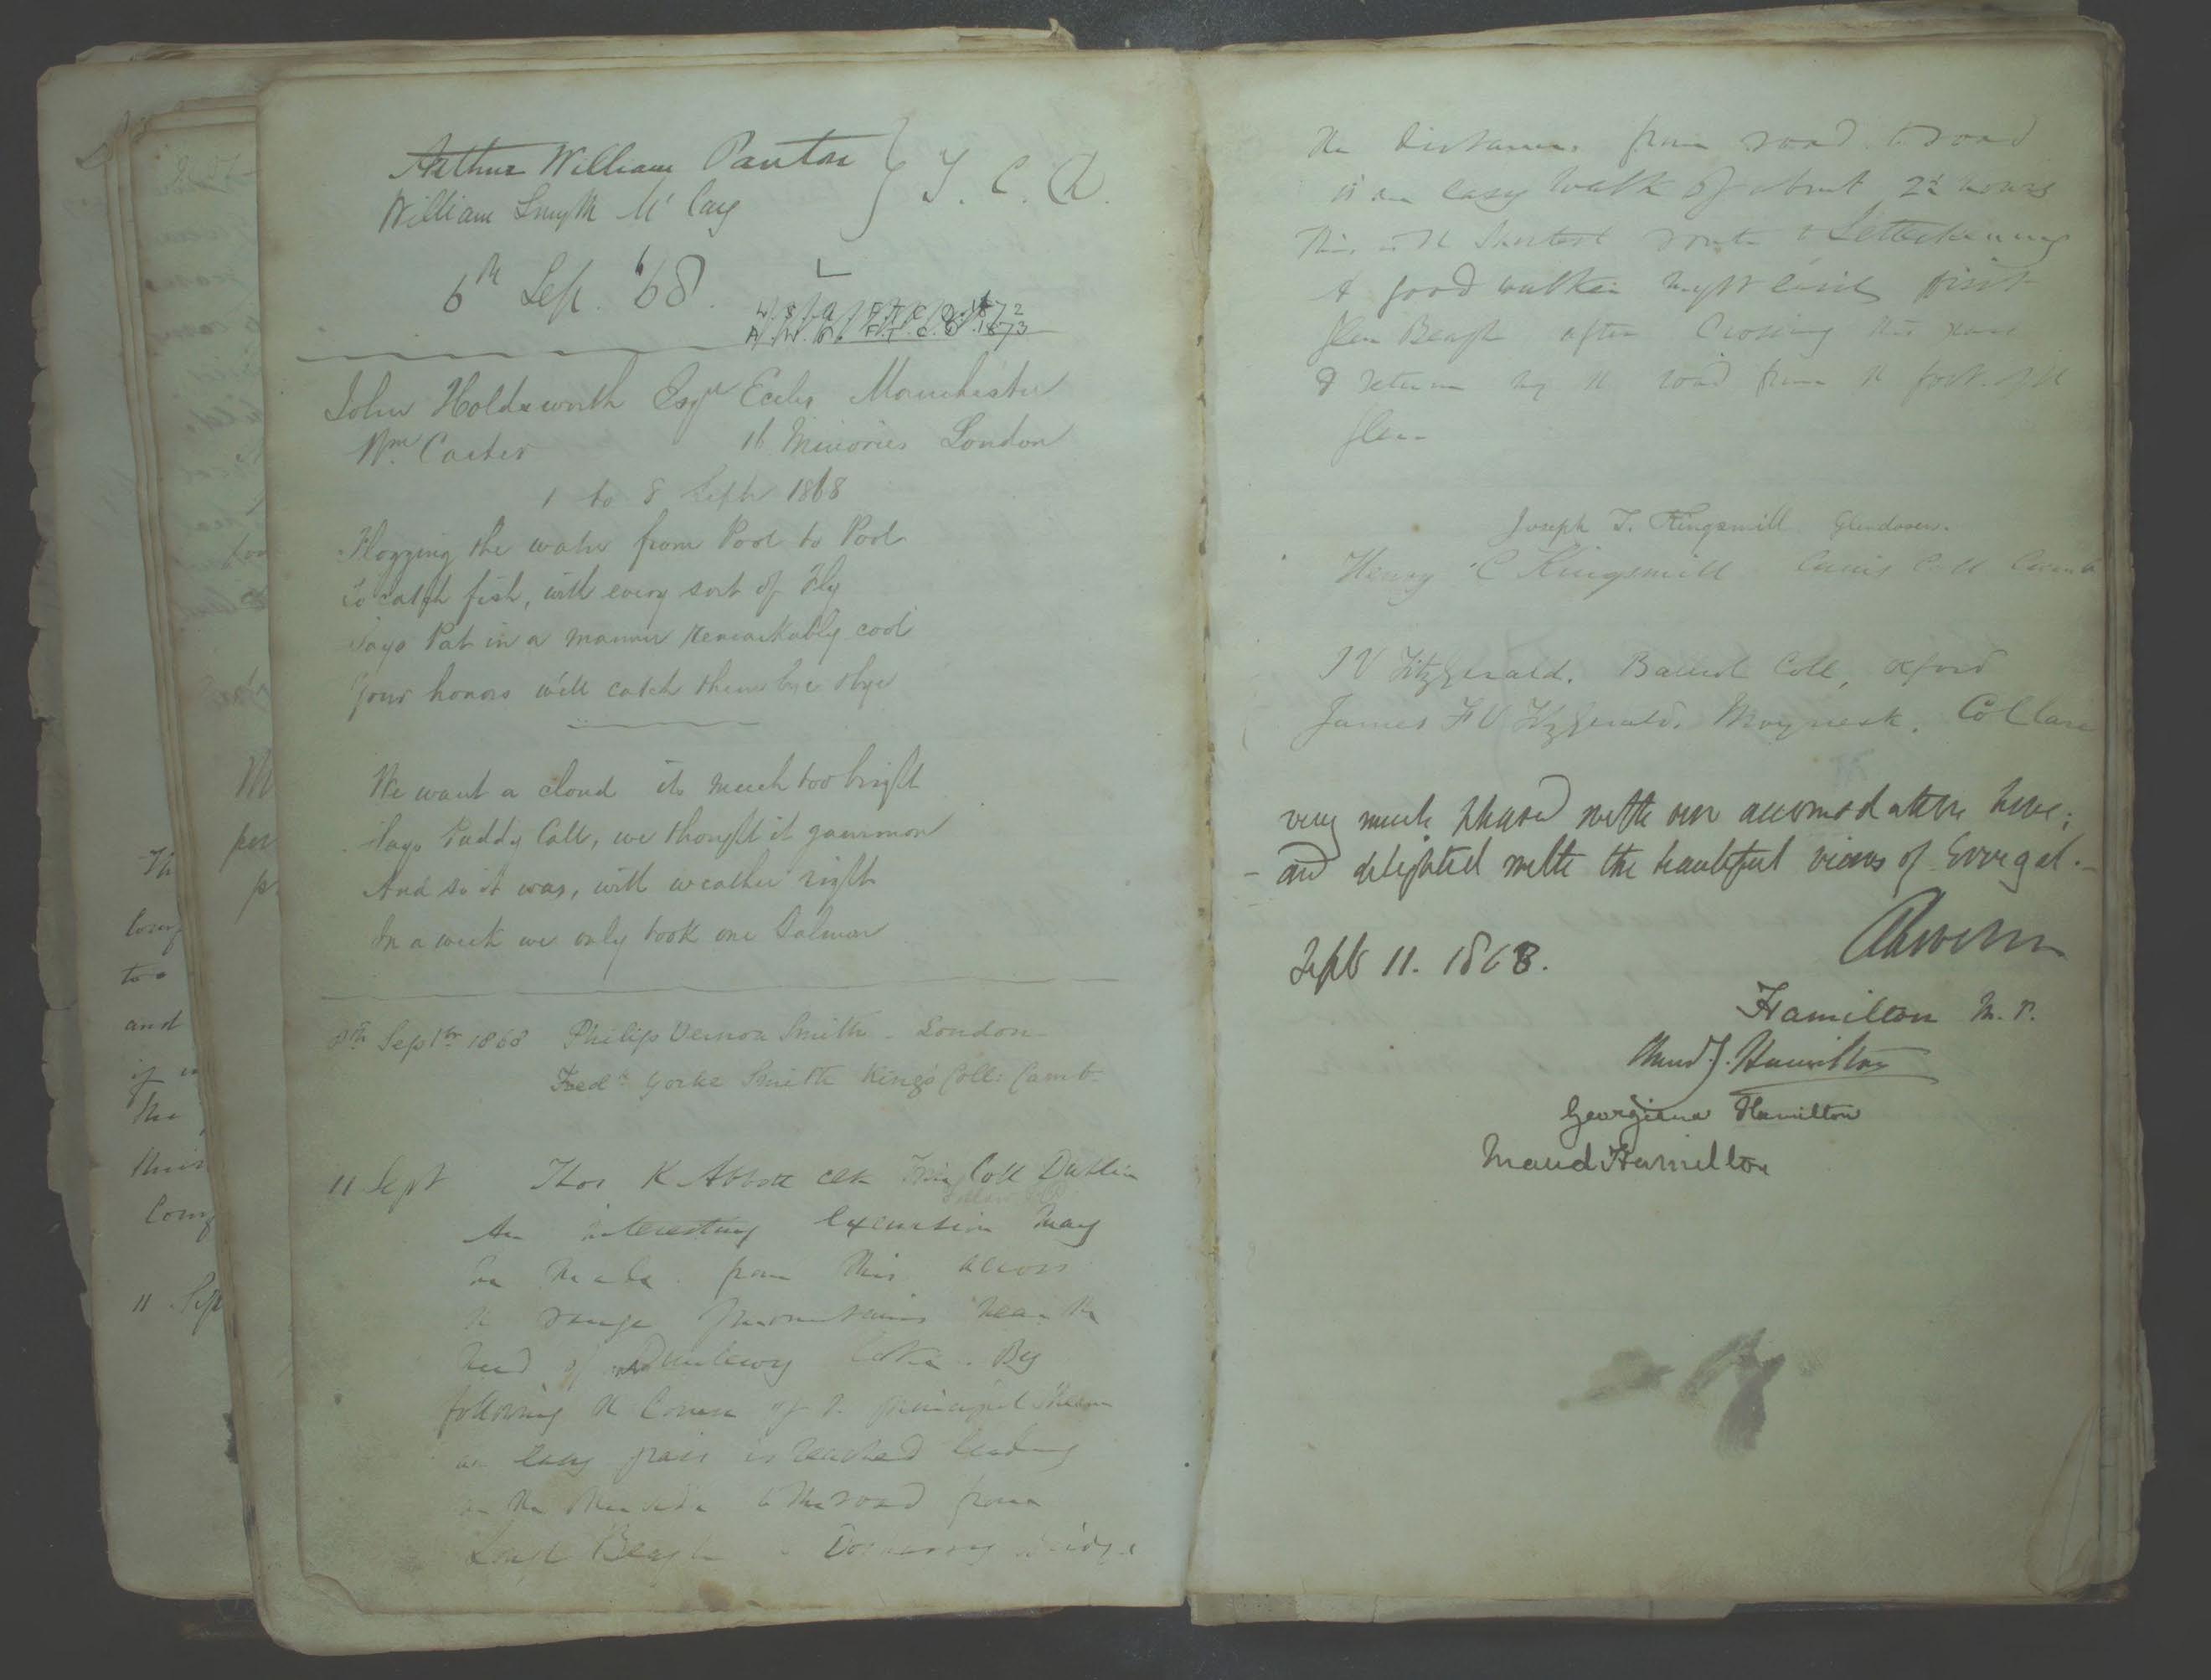 Arthur William Panton } T. C. D.
William Smyth Mc Cay
6th Sep. '68.
F.T.C.D. 1872
A. W. P. F.T.C.D. 1873
John Holdsworth Esqre Eccles Manchester
Wm Carter 16 Minories London
1 to 8 Septr 1868
Flogging the water from Pool to Pool
To catch fish, with every sort of Fly
Says Pat in a manner remarkably cool
Your honors will catch them bye & bye
We want a cloud its much too bright
Says Paddy Call, we thought it gammon
And so it was, with weather right
In a week we only took one Salmon
8th Septbr 1868 Philip Vernon Smith - London
Fredk Yorke Smith King's Coll: Camb.
11 Sept Thos K Abbott Clk Trin Coll Dublin
An interesting excursion may
be made from this across
the range of mountains near the
head of Dunlewy Lake. By
following the course of the principal stream
an easy pass is reached leading
on the other side to the road from
Lough Beagh Bridge
the distance from road to road
is an easy walk of about 2½ hours
This is the shortest route to Letterkenny
A good walker might easily visit
Glen Beagh after crossing this
& return by the road from the foot of the
Glen
Joseph T. Kingsmill Glendowen.
Henry C Kingsmill Caius Coll Camb
J V FitzGerald. Balliol Coll, Oxford
James F V FitzGerald. Moyriesk. Co Clare
very much pleased with our accomodation here;
- and delighted with the beautiful views of Errigal. -
Sept 11. 1868.
Hamilton M. P.
Maud J. Hamilton
Georgiana Hamilton
Maud Hamilton